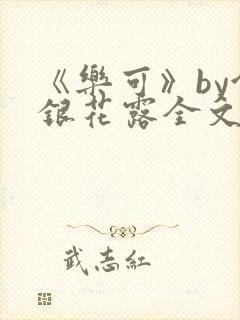 《樂可》by
銀花露全文
武志紅